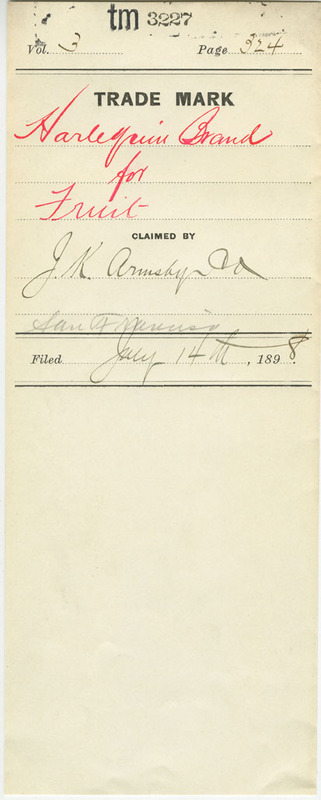 tm 3227
Vol. 3 Page 324
TRADE MARK
Harlequin Brand
for
Fruit
CLAIMED BY
J. K. Armsby Co
San Francisco
Filed July 14th, 1898.